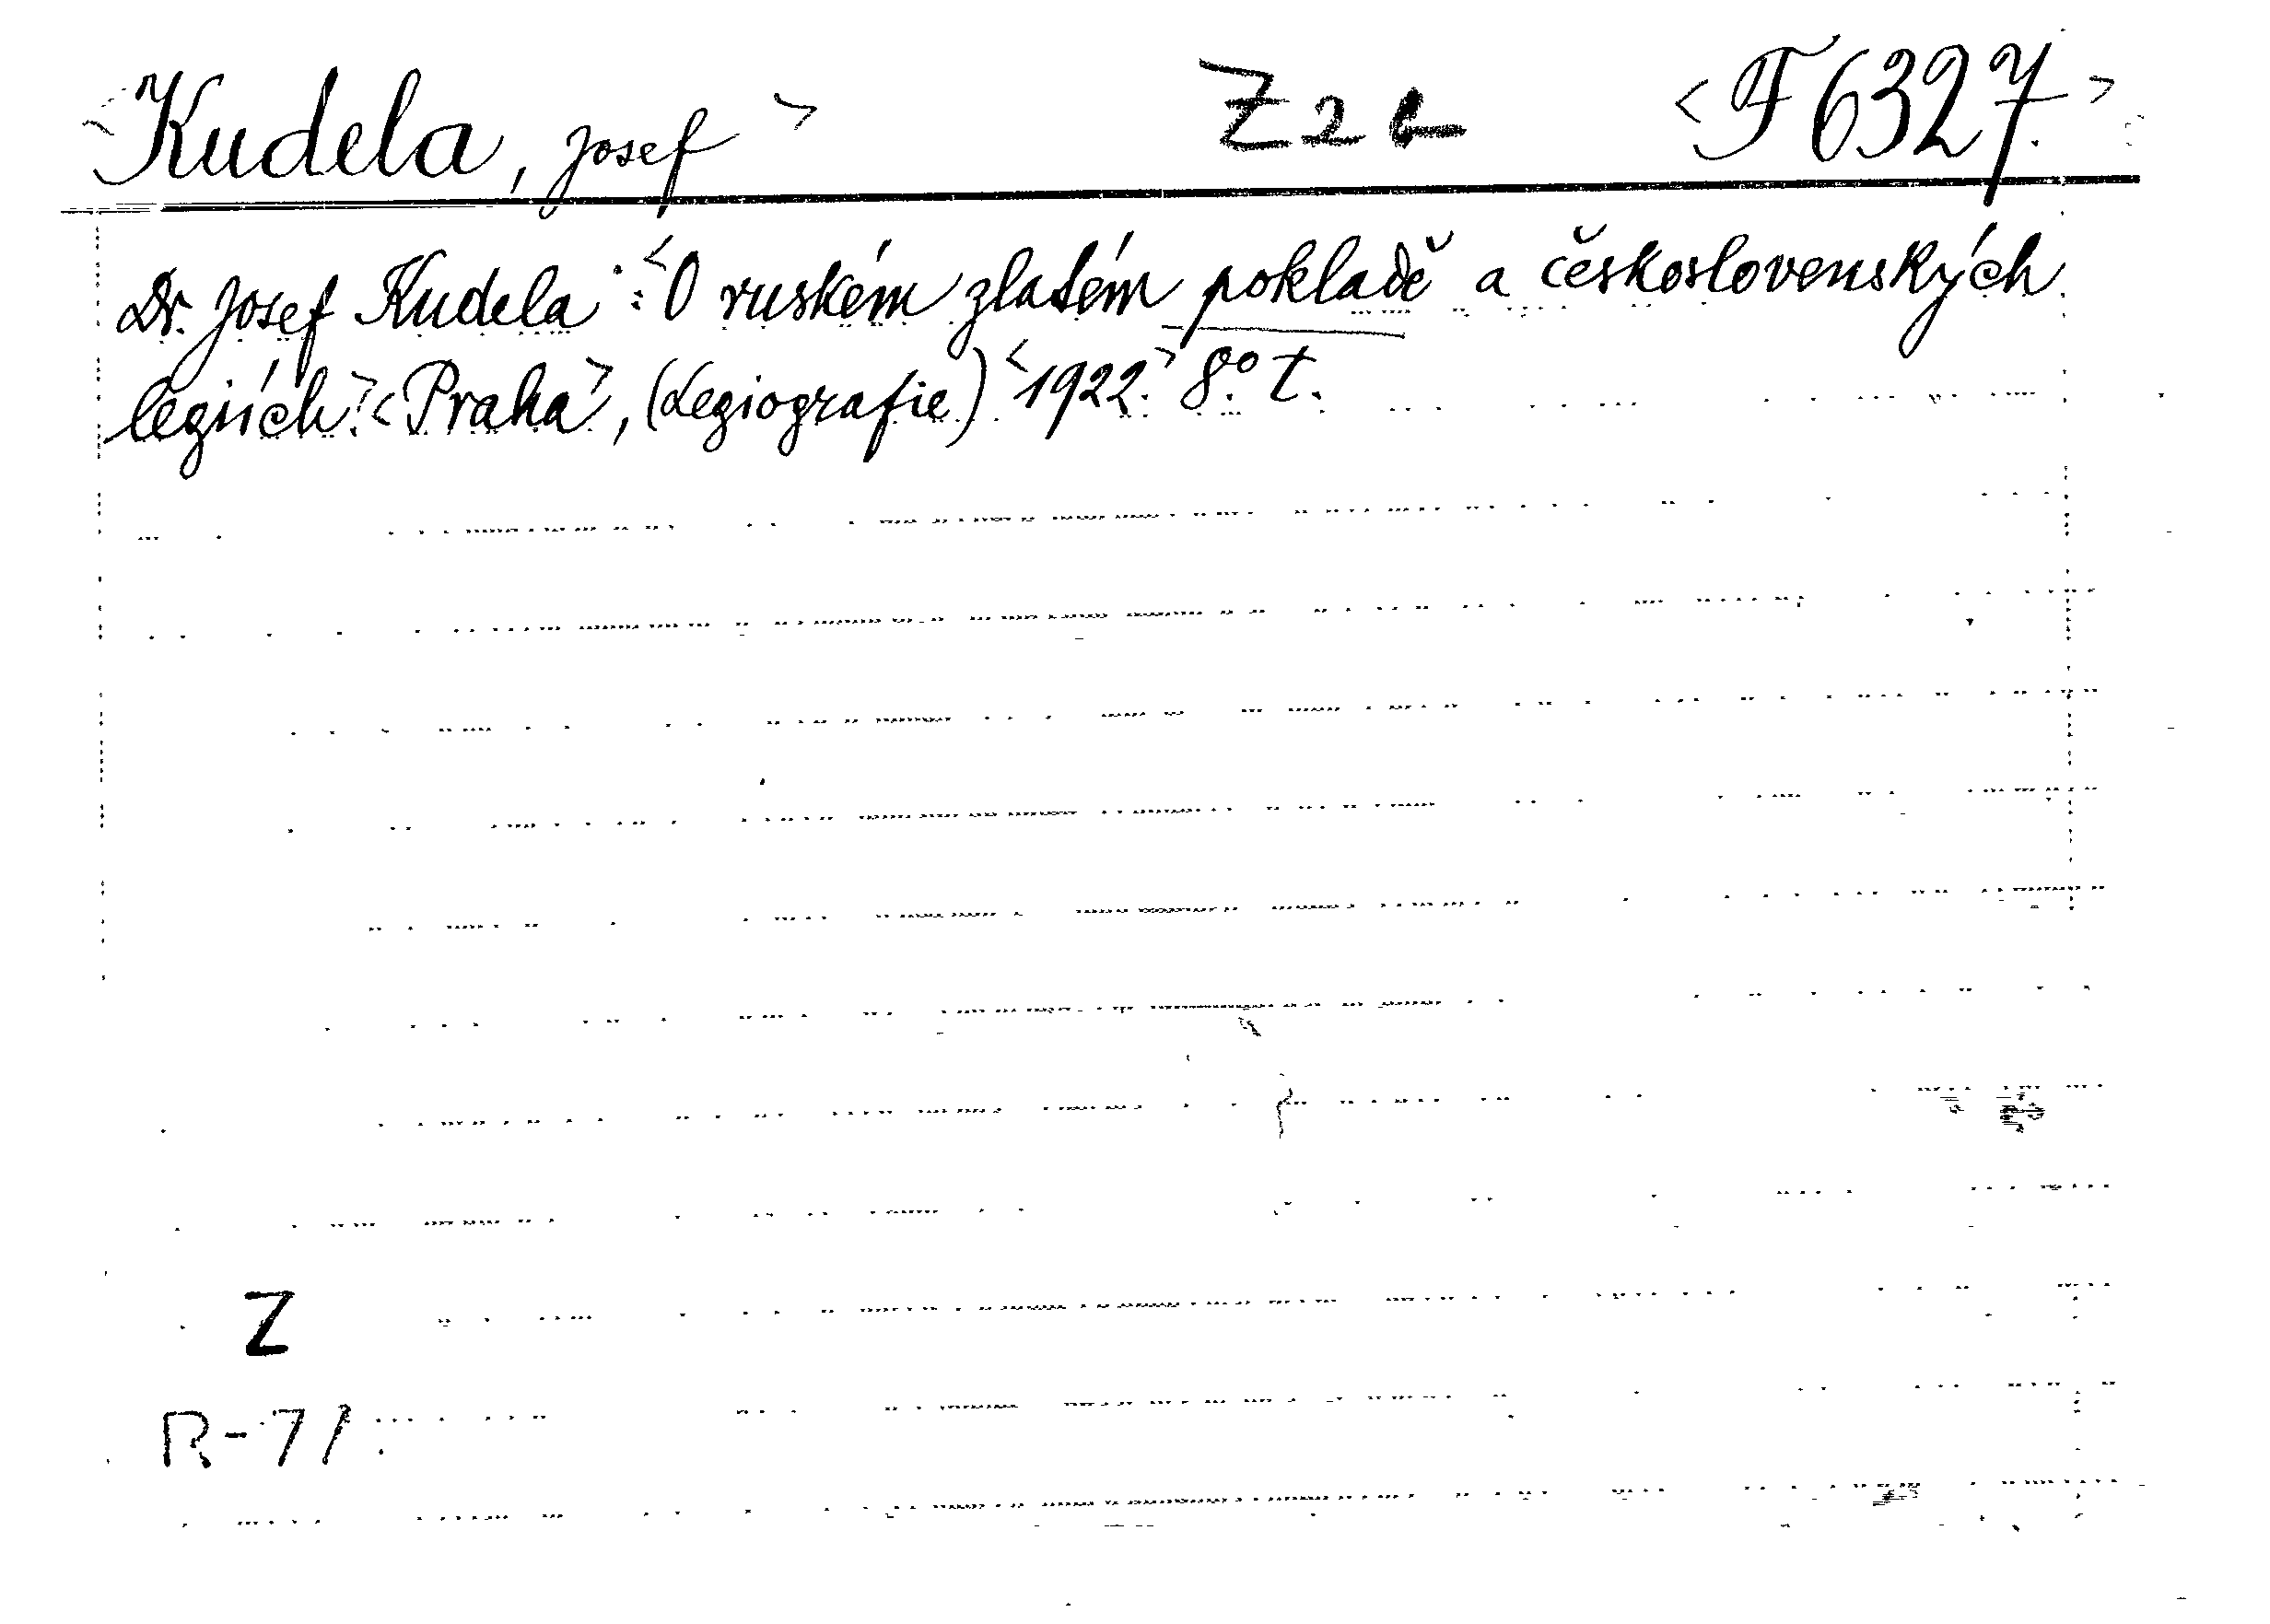 <Kudela, Josef> Z2e <F6327.>
Dr. Josef Kudela : <O ruském zlatém pokladě a československých
legiích.> <Praha>, (Legiografie) <1922.> 8.° t.
Z
R-71